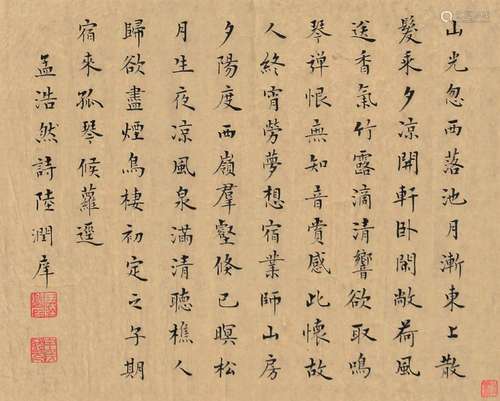 山光忽西落池月漸東上散
髮乘夕凉開軒卧閑敞荷風
送香氣竹露滴清響欲取鳴
琴彈恨無知音賞感此懷故
人終宵勞夢想宿業師山房
夕陽度西嶺羣壑倏已暝松
月生夜凉風泉滿清聽樵人
歸欲盡煙鳥棲初定之子期
宿來孤琴候蘿逕
孟浩然詩陸潤庠